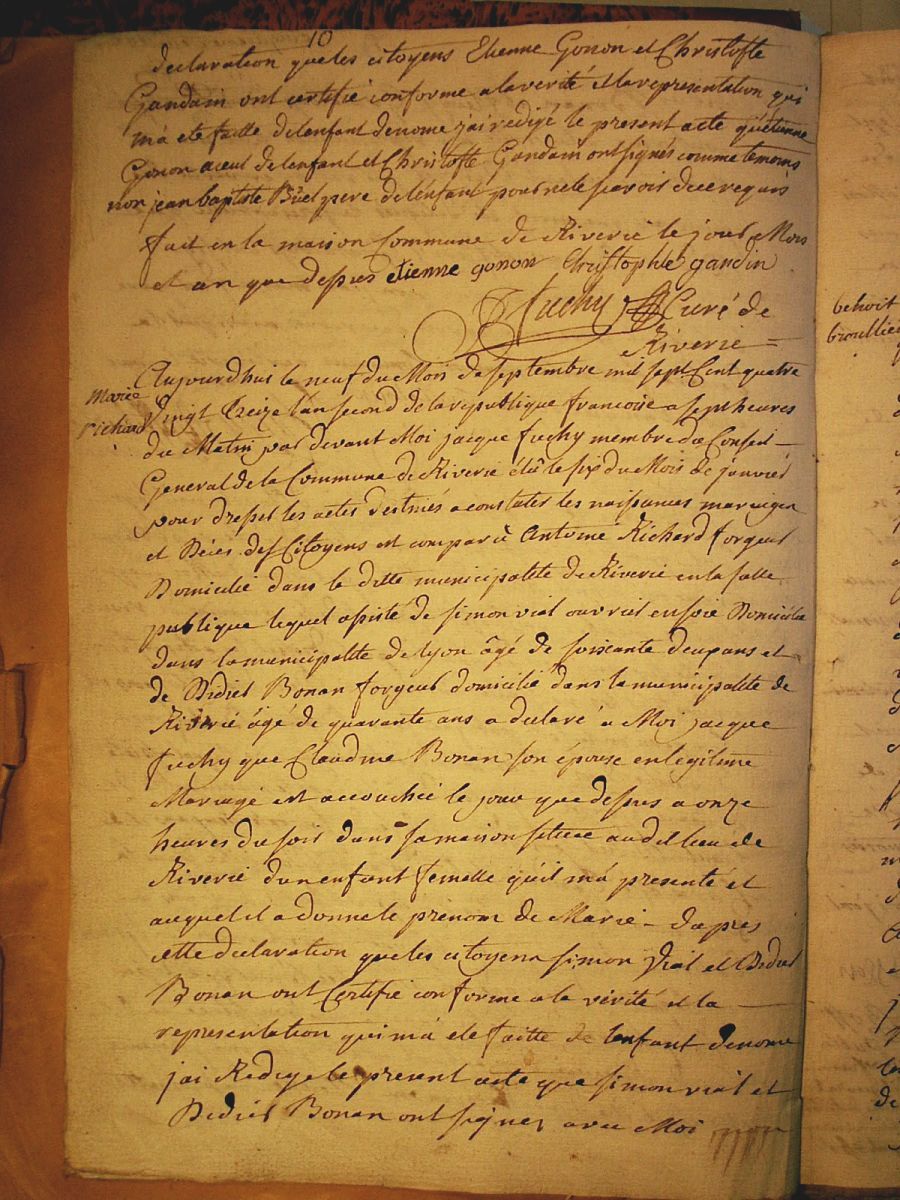 10
declaration que les citoyens Etienne Gonon et Christofle
Gandain ont certifié conforme a la verité et la representation qui
m'a eté faitte de l'enfant denomé j'ai redigé le present acte qu'etienne
Gonon aieul de l'enfant et Christofle Gandain ont signés comme temoins
non jean baptiste père de l'enfant pour ne le savoir de ce requis
fait en la maison Commune de Riverie le jour Mois
et an que dessus etienne gonon Christophle gandin
fuchy Curé de
Riverie
Marie
richard
Aujourdhui le neuf du Mois de septembre mil sept Cent quatre
vingt treize l'an second de la republique francoise a sept heures
du Matin par devant Moi jacque fuchy membre du Conseil
General de la Commune de Riverie élû le six du Mois de janvier
pour dresser les actes destinés a constater les naissances mariages
et Décès des Citoyens est comparû Antoine Richard forgeur
Domicilié dans la ditte municipalité de Riverie en la salle
publique lequel assisté de simon vial ouvrier en soie Domicilié
dans la municipalité de lyon âgé de soixante deux ans et
de Didier Bonan forgeur domicilié dans la municipalité de
Riverie âgé de quarante ans a déclaré a Moi jacque
fuchy que Claudine Bonan son épouse en legitime
Mariage est accouchée le jour que dessus a onze
heures du soir dans sa maison scituee au dit lieu de
Riverie d'un enfant femelle qu'il m'a presenté et
auquel il a donné le prénom de Marie - d'apres
cette declaration que les citoyens simon Vial et Didier
Bonan ont Certifié conforme a la vérité et la
representation qui m'a eté faitte de l'enfant denomé
j'ai Redigé le present acte que simon vial et
Didier Bonan ont signez avec Moi non
benoit
broullie